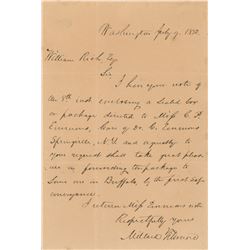 Washington July 9. 1850.
William Rich Esq
Sir
I have your note of
the 8th inst enclosing a sealed box
or package directed to Miss C. A
care of Dr. C.
Springville, N.Y and agreeably to
your request shall take great pleasure
in forwarding the package to
in Buffalo, by the first safe
conveyance.
I return Miss note
Respectfully yours
Millard Fillmore